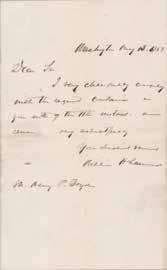 Washington Aug 15, 18
Dear Sir
I very cheerfully comply
with the request contained in
your note of the 11th instant. and
remain very respectfully
Your obedient servant
Mr. Henry P.